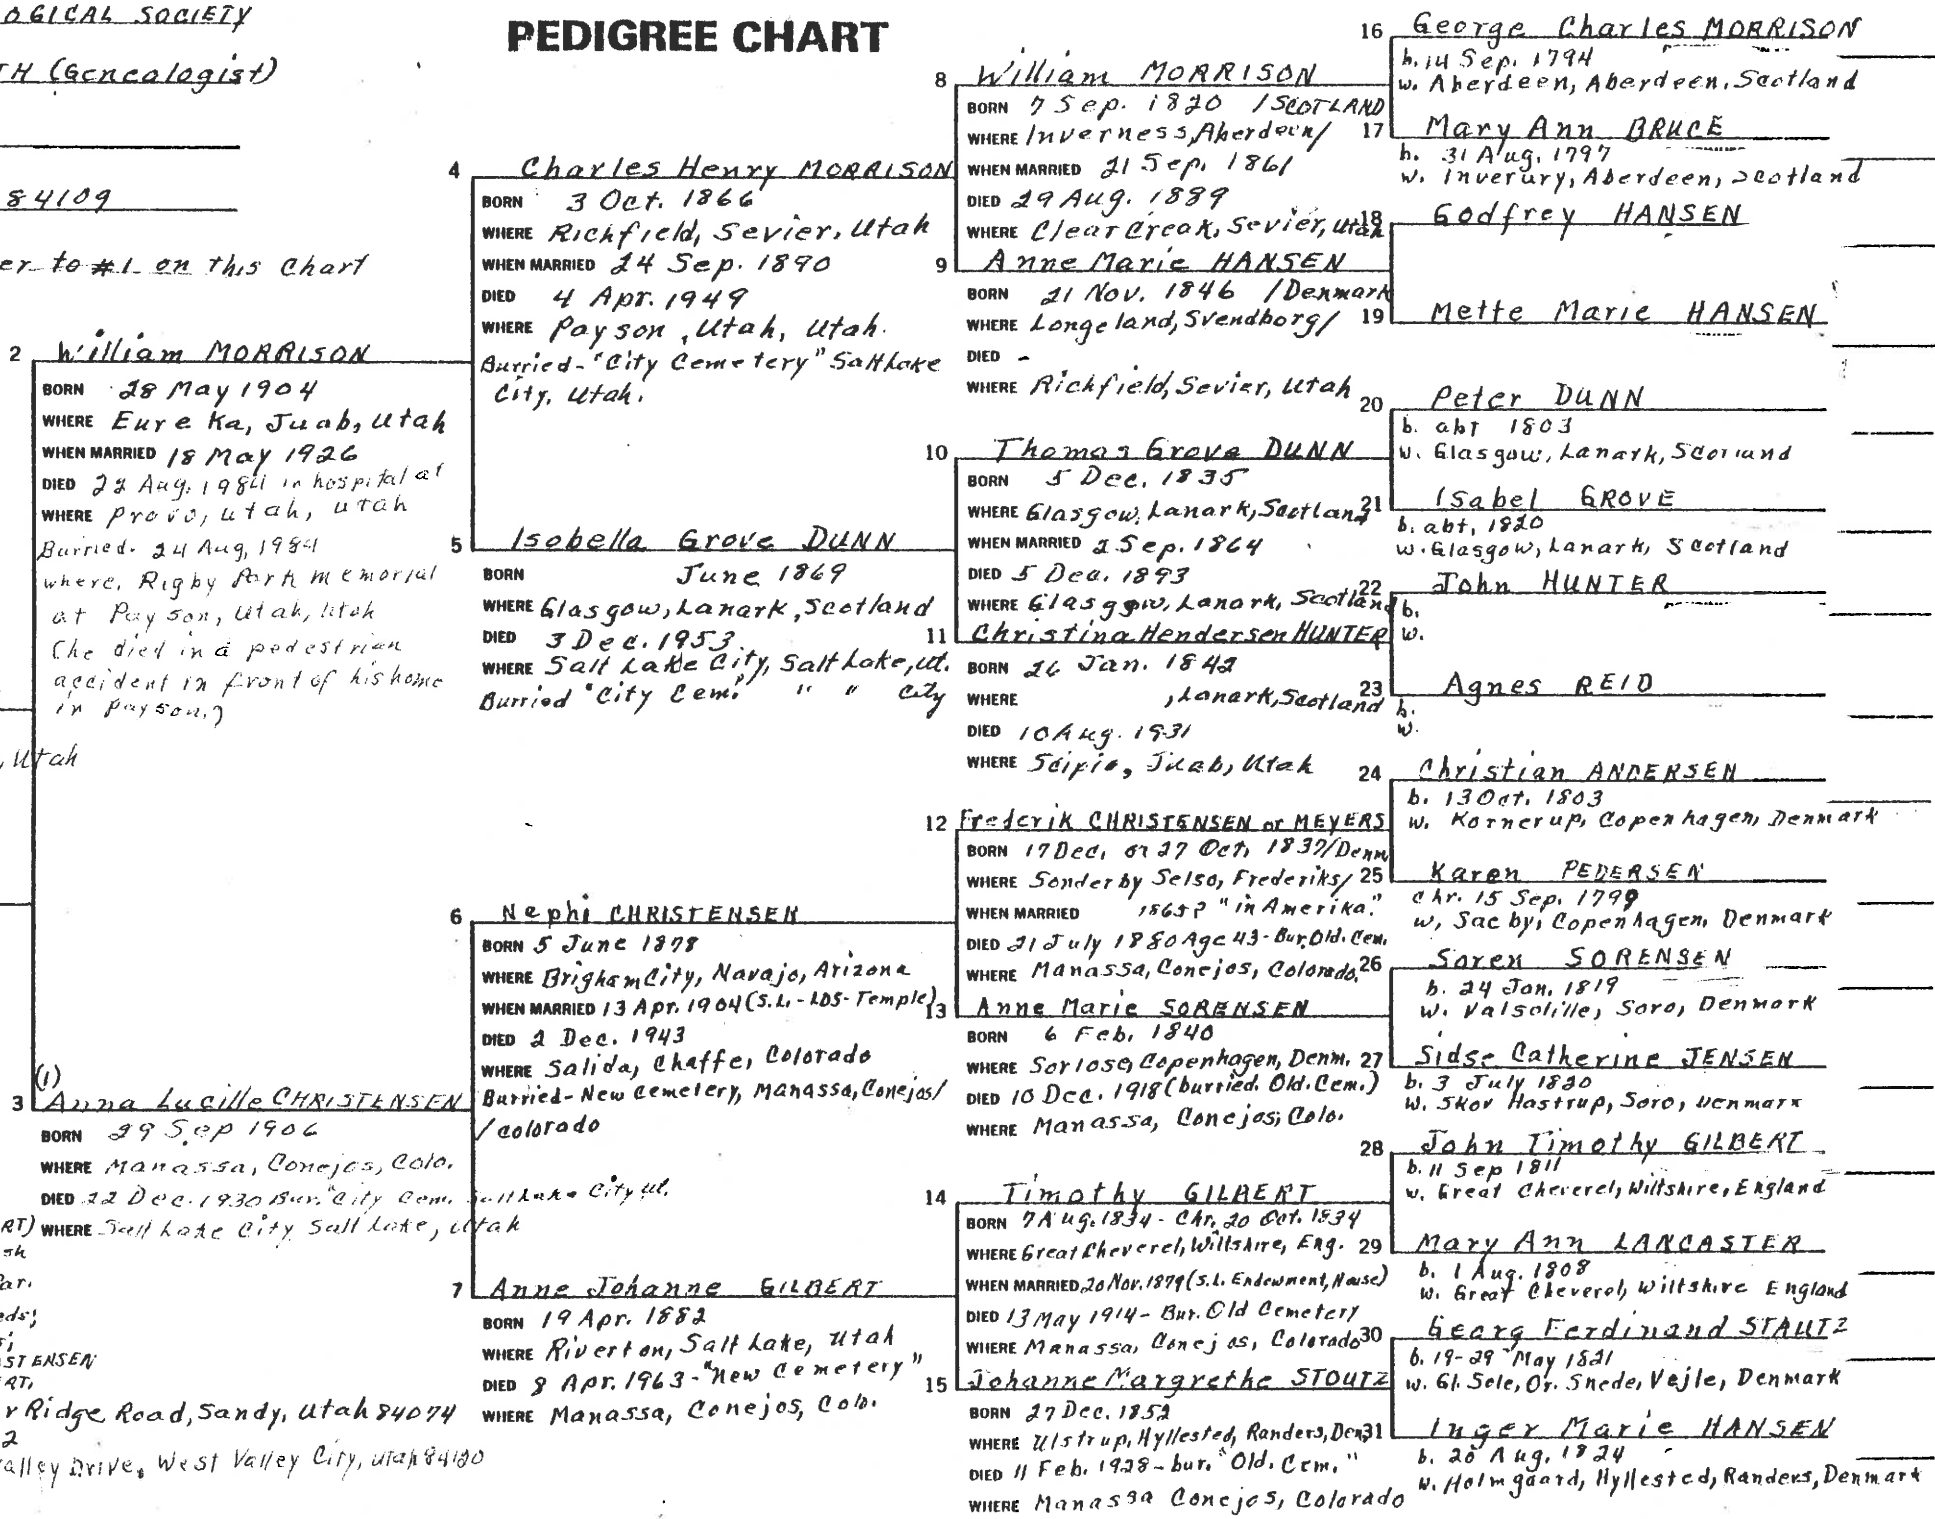 OGICAL SOCIETY
TH (Genealogist)
84109
er to #1 on this Chart
PEDIGREE CHART
2 William MORRISON
BORN 28 May 1904
WHERE Eureka, Juab, Utah
WHEN MARRIED 18 May 1926
DIED 22 Aug. 1984 in hospital at
WHERE Provo, Utah, Utah
Burried. 24 Aug, 1984
where, Rigby Park Memorial
at Payson, Utah, Utah
(he died in a pedestrian
accident in front of his home
in Payson.)
, Utah
(1)
3 Anna Lucille CHRISTENSEN
BORN 29 Sep 1906
WHERE Manassa, Conejos, Colo.
DIED 22 Dec. 1930 Bur. "City Cem. Salt Lake City Ut.
WHERE Salt Lake City Salt Lake, Utah
RT)
sh
Par.
eds;
s;
STENSEN
RT,
r Ridge Road, Sandy, Utah 84074
2
alley Drive, West Valley City, Utah 84120
4 Charles Henry MORRISON
BORN 3 Oct. 1866
WHERE Richfield, Sevier, Utah
WHEN MARRIED 24 Sep. 1890
DIED 4 Apr. 1949
WHERE Payson, Utah, Utah.
Burried - "City Cemetery" Salt Lake
City, Utah.
5 Isobella Grove DUNN
BORN June 1869
WHERE Glasgow, Lanark, Scotland
DIED 3 Dec. 1953.
WHERE Salt Lake City, Salt Lake, Ut.
Burried "City Cem." " " City
6 Nephi CHRISTENSEN
BORN 5 June 1878
WHERE Brigham City, Navajo, Arizona
WHEN MARRIED 13 Apr. 1904 (S.L.-LDS-Temple)
DIED 2 Dec. 1943
WHERE Salida, Chaffe, Colorado
Burried - New Cemetery, Manassa, Conejos/
/Colorado
7 Anne Johanne GILBERT
BORN 19 Apr. 1882
WHERE Riverton, Salt Lake, Utah
DIED 8 Apr. 1963 - "New Cemetery"
WHERE Manassa, Conejos, Colo.
8 William MORRISON
BORN 7 Sep. 1820 /SCOTLAND
WHERE Inverness, Aberdeen/
WHEN MARRIED 21 Sep. 1861
DIED 29 Aug. 1889
WHERE Clear Creak, Sevier, Utah
9 Anne Marie HANSEN
BORN 21 Nov. 1846 /Denmark
WHERE Longeland, Svendborg/
DIED -
WHERE Richfield, Sevier, Utah
10 Thomas Grove DUNN
BORN 5 Dec. 1835
WHERE Glasgow, Lanark, Scotland
WHEN MARRIED 2 Sep. 1864
DIED 5 Dec. 1893
WHERE Glasgow, Lanark, Scotland
11 Christina Hendersen HUNTER
BORN 26 Jan. 1842
WHERE , Lanark, Scotland
DIED 10 Aug. 1931
WHERE Scipio, Juab, Utah
12 Frederik CHRISTENSEN or MEYERS
BORN 17 Dec. or 27 Oct. 1837/Denm
WHERE Sonderby Selso, Frederiks/
WHEN MARRIED 1865? "in Amerika."
DIED 21 July 1880 Age 43 - Bur. Old. Cem.
WHERE Manassa, Conejos, Colorado.
13 Anne Marie SORENSEN
BORN 6 Feb. 1840
WHERE Sorlose, Copenhagen, Denm.
DIED 10 Dec. 1918 (burried. Old. Cem.)
WHERE Manassa, Conejos, Colo.
14 Timothy GILBERT
BORN 7 Aug. 1834 - Chr. 20 Oct. 1834
WHERE Great Cheverel, Wiltshire, Eng.
WHEN MARRIED 20 Nov. 1879 (S.L. Endowment, House)
DIED 13 May 1914 - Bur. Old Cemetery
WHERE Manassa, Conejos, Colorado
15 Johanne Margrethe STOUTZ
BORN 27 Dec. 1852
WHERE Ulstrup, Hyllested, Randers, Den
DIED 11 Feb. 1928 - bur. "Old. Cem."
WHERE Manassa Conejos, Colorado
16 George Charles MORRISON
b. 14 Sep. 1794
w. Aberdeen, Aberdeen, Scotland
17 Mary Ann BRUCE
b. 31 Aug. 1797
w. Inverury, Aberdeen, Scotland
18 Godfrey HANSEN
19 Mette Marie HANSEN
20 Peter DUNN
b. abt 1803
w. Glasgow, Lanark, Scotland
21 Isabel GROVE
b. abt, 1820
w. Glasgow, Lanark, Scotland
22 John HUNTER
b.
w.
23 Agnes REID
b.
w.
24 Christian ANDERSEN
b. 13 Oct. 1803
w. Kornerup, Copenhagen, Denmark
25 Karen PEDERSEN
Chr. 15 Sep. 1799
w. Sacby, Copenhagen, Denmark
26 Soren SORENSEN
b. 24 Jan. 1819
w. Valsolille, Soro, Denmark
27 Sidse Catherine JENSEN
b. 3 July 1820
w. Skov Hastrup, Soro, Denmark
28 John Timothy GILBERT
b. 11 Sep 1811
w. Great Cheverel, Wiltshire, England
29 Mary Ann LANCASTER
b. 1 Aug. 1808
w. Great Cheverel, Wiltshire England
30 Georg Ferdinand STAUTZ
b. 19-29 May 1821
w. Gl. Sole, Or. Snede, Vejle, Denmark
31 Inger Marie HANSEN
b. 20 Aug. 1824
w. Holmgaard, Hyllested, Randers, Denmark